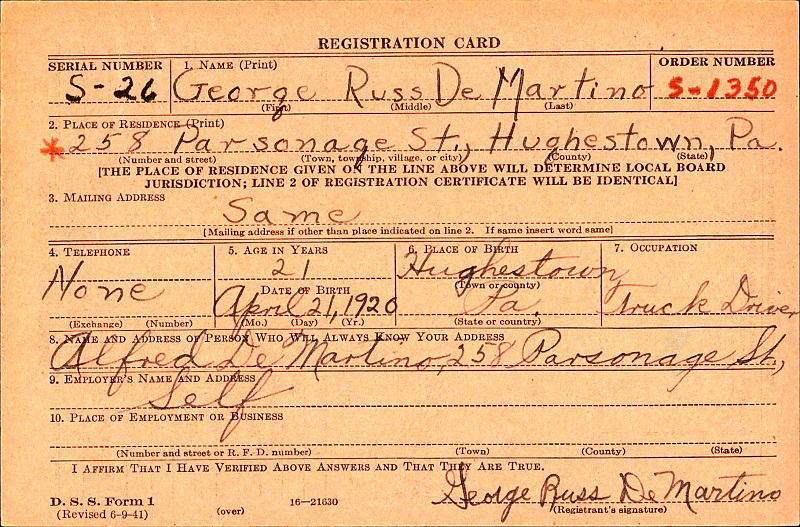 REGISTRATION CARD
SERIAL NUMBER 1. NAME (Print) ORDER NUMBER
S-26 George Russ De Martino S-1350
(First) (Middle) (Last)
2. PLACE OF RESIDENCE (Print)
*258 Parsonage St., Hughestown, Pa.
(Number and street) (Town, township, village, or city) (County) (State)
[THE PLACE OF RESIDENCE GIVEN ON THE LINE ABOVE WILL DETERMINE LOCAL BOARD
JURISDICTION; LINE 2 OF REGISTRATION CERTIFICATE WILL BE IDENTICAL]
3. MAILING ADDRESS
Same
[Mailing address if other than place indicated on line 2. If same insert word same]
4. TELEPHONE 5. AGE IN YEARS 6. PLACE OF BIRTH 7. OCCUPATION
None 21 Hughestown
DATE OF BIRTH (Town or county)
April 21, 1920 Pa. Truck Driver
(Exchange) (Number) (Mo.) (Day) (Yr.) (State or country)
8. NAME AND ADDRESS OF PERSON WHO WILL ALWAYS KNOW YOUR ADDRESS
Alfred De Martino, 258 Parsonage St.,
9. EMPLOYER'S NAME AND ADDRESS
Self
10. PLACE OF EMPLOYMENT OR BUSINESS
(Number and street or R. F. D. number) (Town) (County) (State)
I AFFIRM THAT I HAVE VERIFIED ABOVE ANSWERS AND THAT THEY ARE TRUE.
George Russ De Martino
D. S. S. Form 1 16—21630 (Registrant's signature)
(Revised 6-9-41) (over)